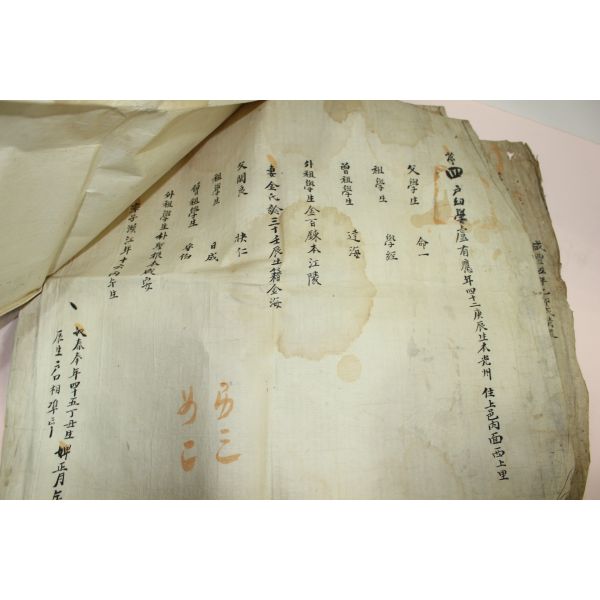 第四戶幼學盧有應年四十二庚辰生本光州 住上邑內面西上里
父學生 命一
祖學生 學經
曾祖學生 達海
外祖學生金百鍊本江陵
妻金氏齡三十壬辰生籍金海
父閑良 挾仁
祖學生 日成
曾祖學生
外祖學生朴聖根本咸安
年十六
春今年四十五丁丑生 婢正月年
辰生 戶口相準
男三
女二